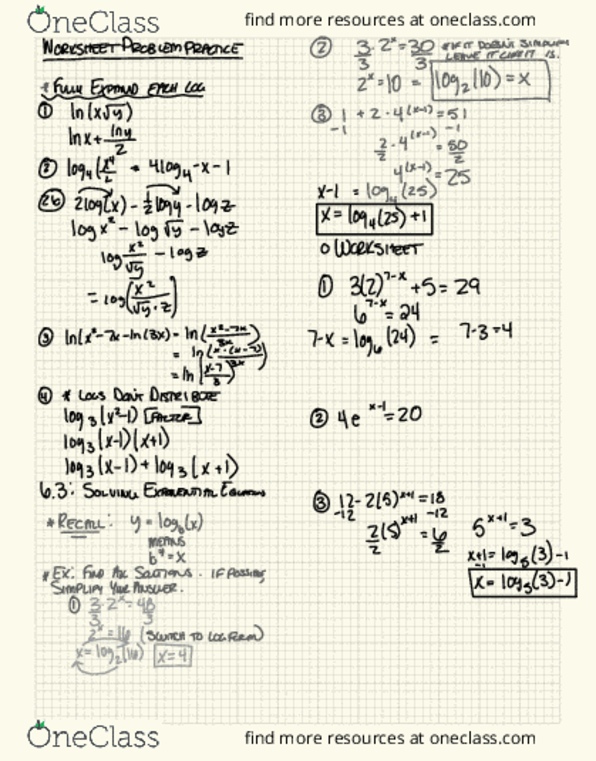 OneClass
find more resources at oneclass.com
WORKSHEET PROBLEM PRACTICE
* FULLY EXPAND EACH LOG
① ln(x√y)
lnx + lny/2
② log₄(x⁴/2 = 4log₄-x-1
2b 2log(x) - ½logy - logz
logx² - log√y - logz
log x²/√y - logz
= log(x²/√y·z)
③ ln(x²-7x-ln(3x) = ln(x²-7x/3x)
= ln(x·(x-7)/3x)
= ln(x-7/3)
④ * LOGS DON'T DISTRIBUTE
log₃(x²-1) [FACTOR]
log₃(x-1)(x+1)
log₃(x-1)+log₃(x+1)
6.3: SOLVING EXPONENTIAL EQUATIONS
* RECALL: y = log_b(x)
MEANS
b^y = x
* EX: FIND ALL SOLUTIONS. IF POSSIBLE,
SIMPLIFY YOUR ANSWER.
① 3·2ˣ = 48
3 3
2ˣ = 16 (SWITCH TO LOG FORM)
x = log₂(16) x=4
② 3·2ˣ = 30 * IF IT DOESN'T SIMPLIFY
3 3 LEAVE IT LIKE IT IS.
2ˣ = 10 = log₂(10) = x
③ 1 + 2·4⁽ˣ⁻¹⁾ = 51
-1 -1
2·4⁽ˣ⁻¹⁾ = 50
2 2
4⁽ˣ⁻¹⁾ = 25
x-1 = log₄(25)
x = log₄(25) + 1
○ WORKSHEET
① 3(2)⁷⁻ˣ + 5 = 29
6⁷⁻ˣ = 24
7-x = log₆(24) = 7-3=4
② 4e ˣ⁻¹ = 20
③ 12-2(5)ˣ⁺¹ = 18
-12 -12
2(5)ˣ⁺¹ = 6 5ˣ⁺¹ = 3
2 2
x+1 = log₅(3) -1
-1
x = log₅(3) - 1
OneClass
find more resources at oneclass.com